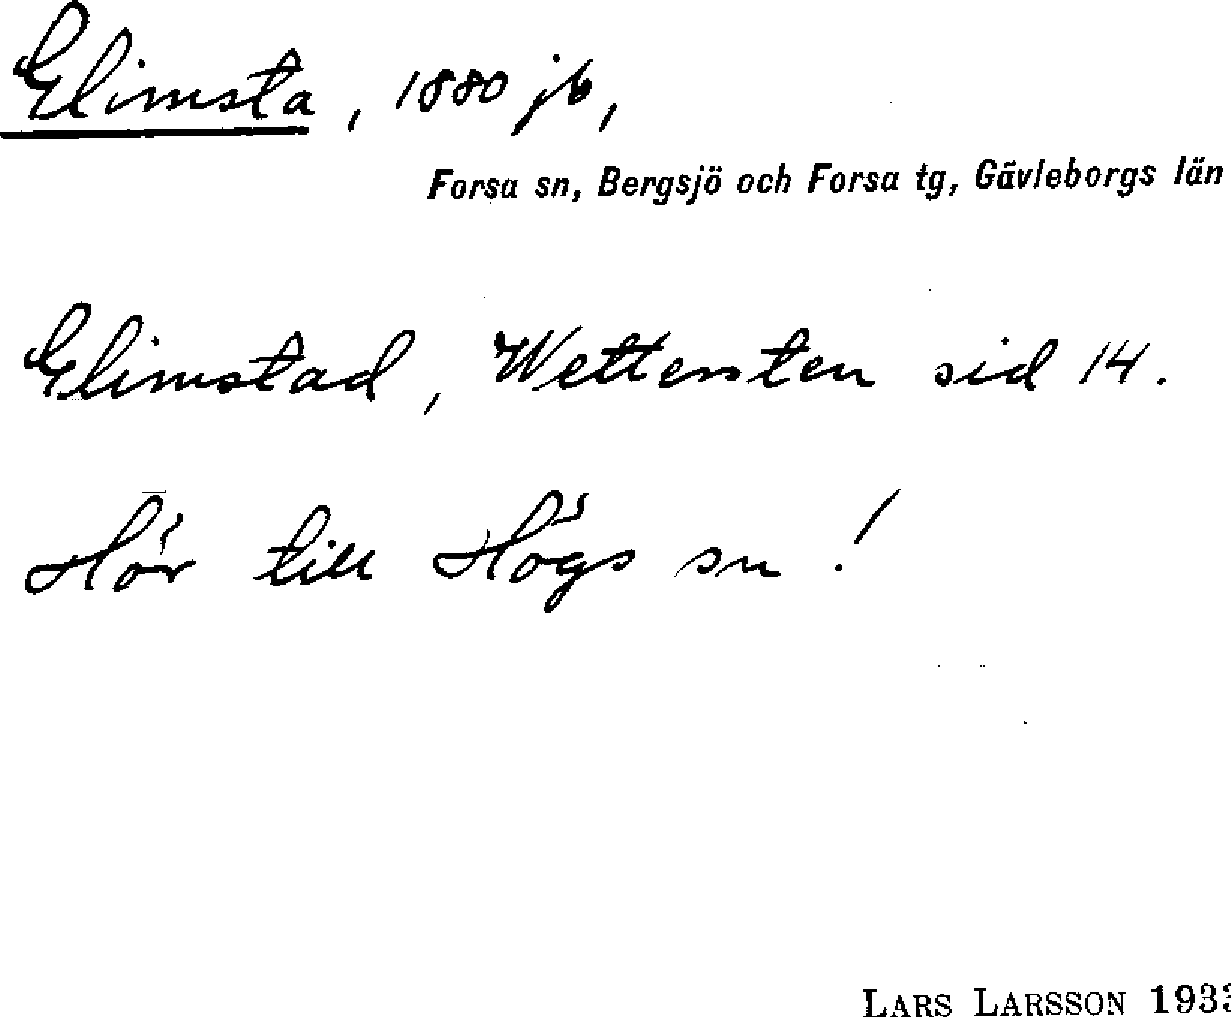 Elimsta, 1880 jb,
Forsa sn, Bergsjö och Forsa tg, Gävleborgs län
Elimstad, Wettersten sid 14.
Hör till Högs sn!
LARS LARSSON 1933